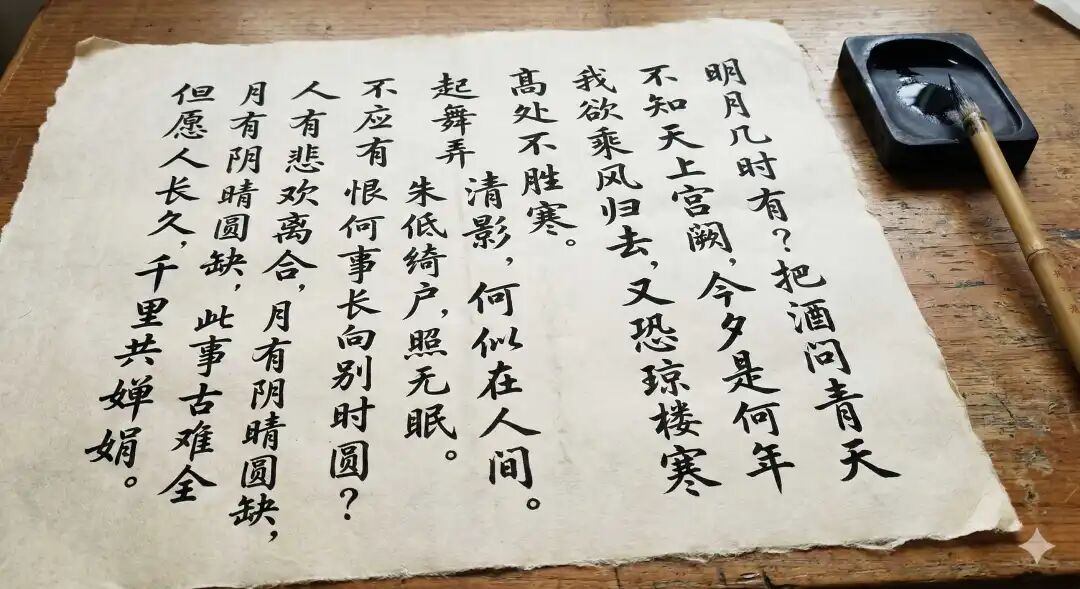 明月几时有？把酒问青天
不知天上宫阙，今夕是何年
我欲乘风归去，又恐琼楼寒
高处不胜寒。
起舞弄清影，何似在人间。
朱低绮户，照无眠。
不应有恨何事长向别时圆？
人有悲欢离合，月有阴晴圆缺，
月有阴晴圆缺，此事古难全
但愿人长久，千里共婵娟。